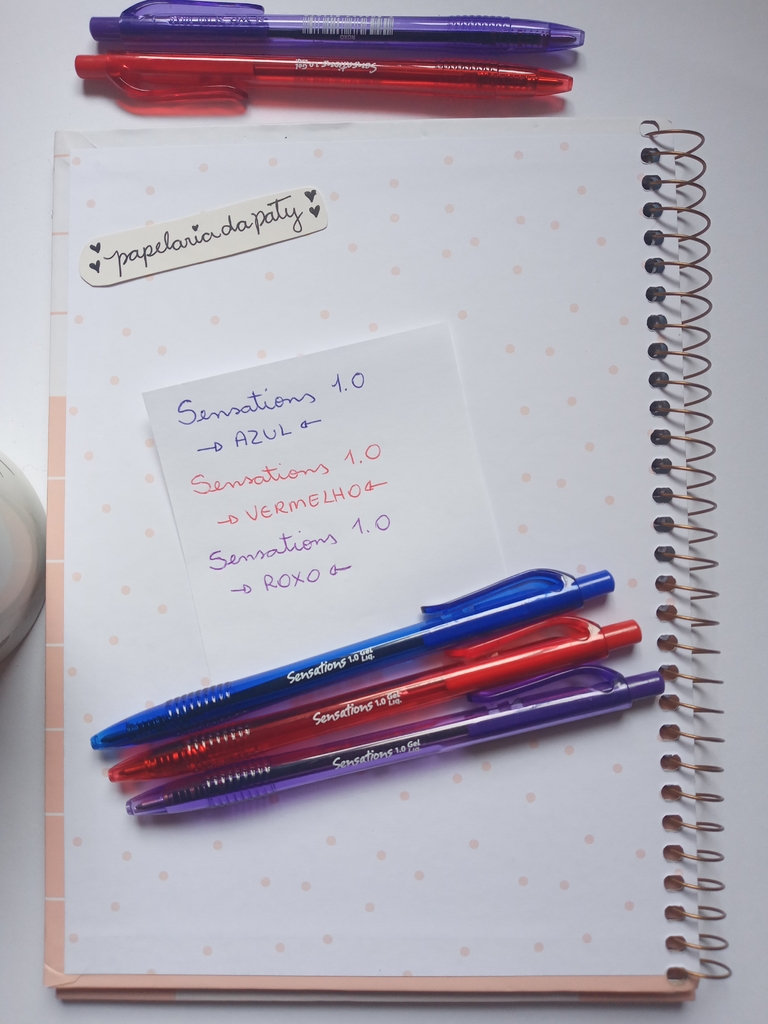 Sensations 1.0 Gel
papelaria da paty
Sensations 1.0
→ AZUL ←
Sensations 1.0
→ VERMELHO ←
Sensations 1.0
→ ROXO ←
Sensations 1.0 Gel Liq.
Sensations 1.0 Gel Liq.
Sensations 1.0 Gel Liq.